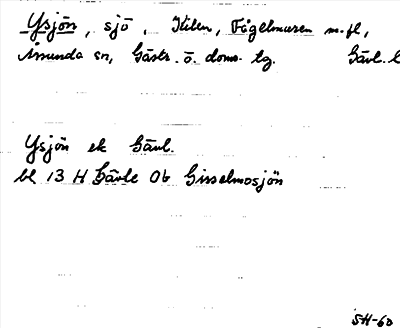 Ysjön, sjö, Itilen, Fågelmuren m.fl,
Årsunda sn, Gästr. ö. doms. lg. Gävl. l
Ysjön ek Gävl.
bl 13 H Gävle 0b Gisselmosjön
SH-60